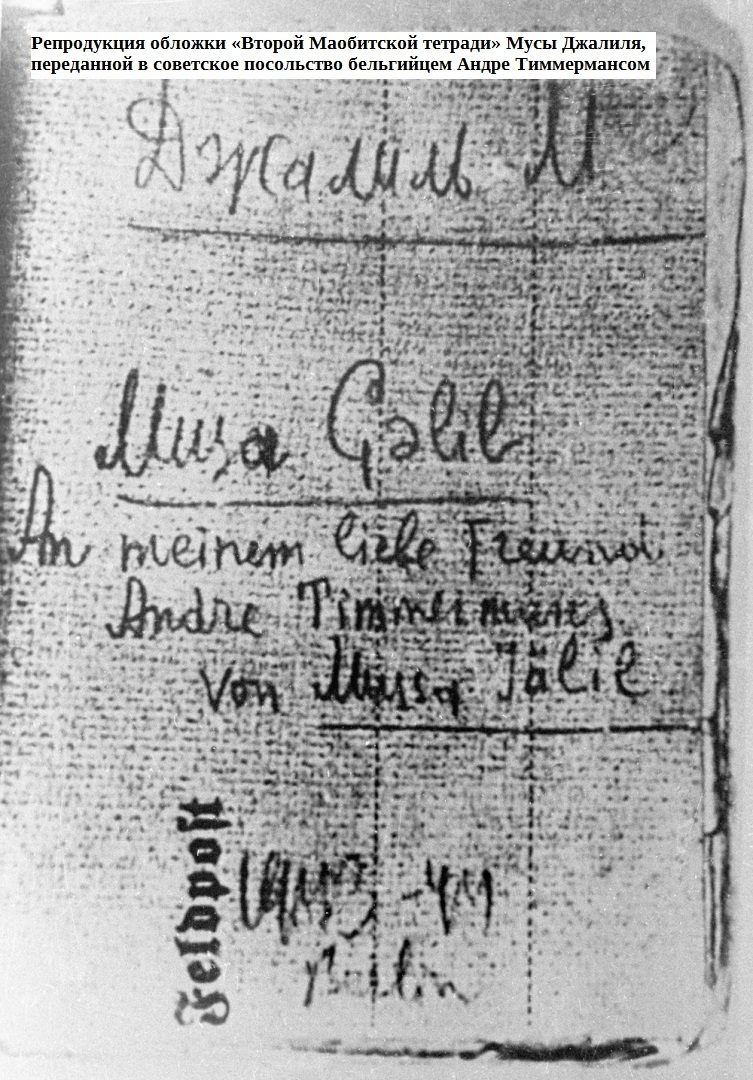 Репродукция обложки «Второй Маобитской тетради» Мусы Джалиля,
переданной в советское посольство бельгийцем Андре Тиммермансом
Джалиль М
Musa Çəlil
An meinem liebe Freund
Andre Timmermans
von Mussa Jälil
Feldpost
1943-44
Berlin